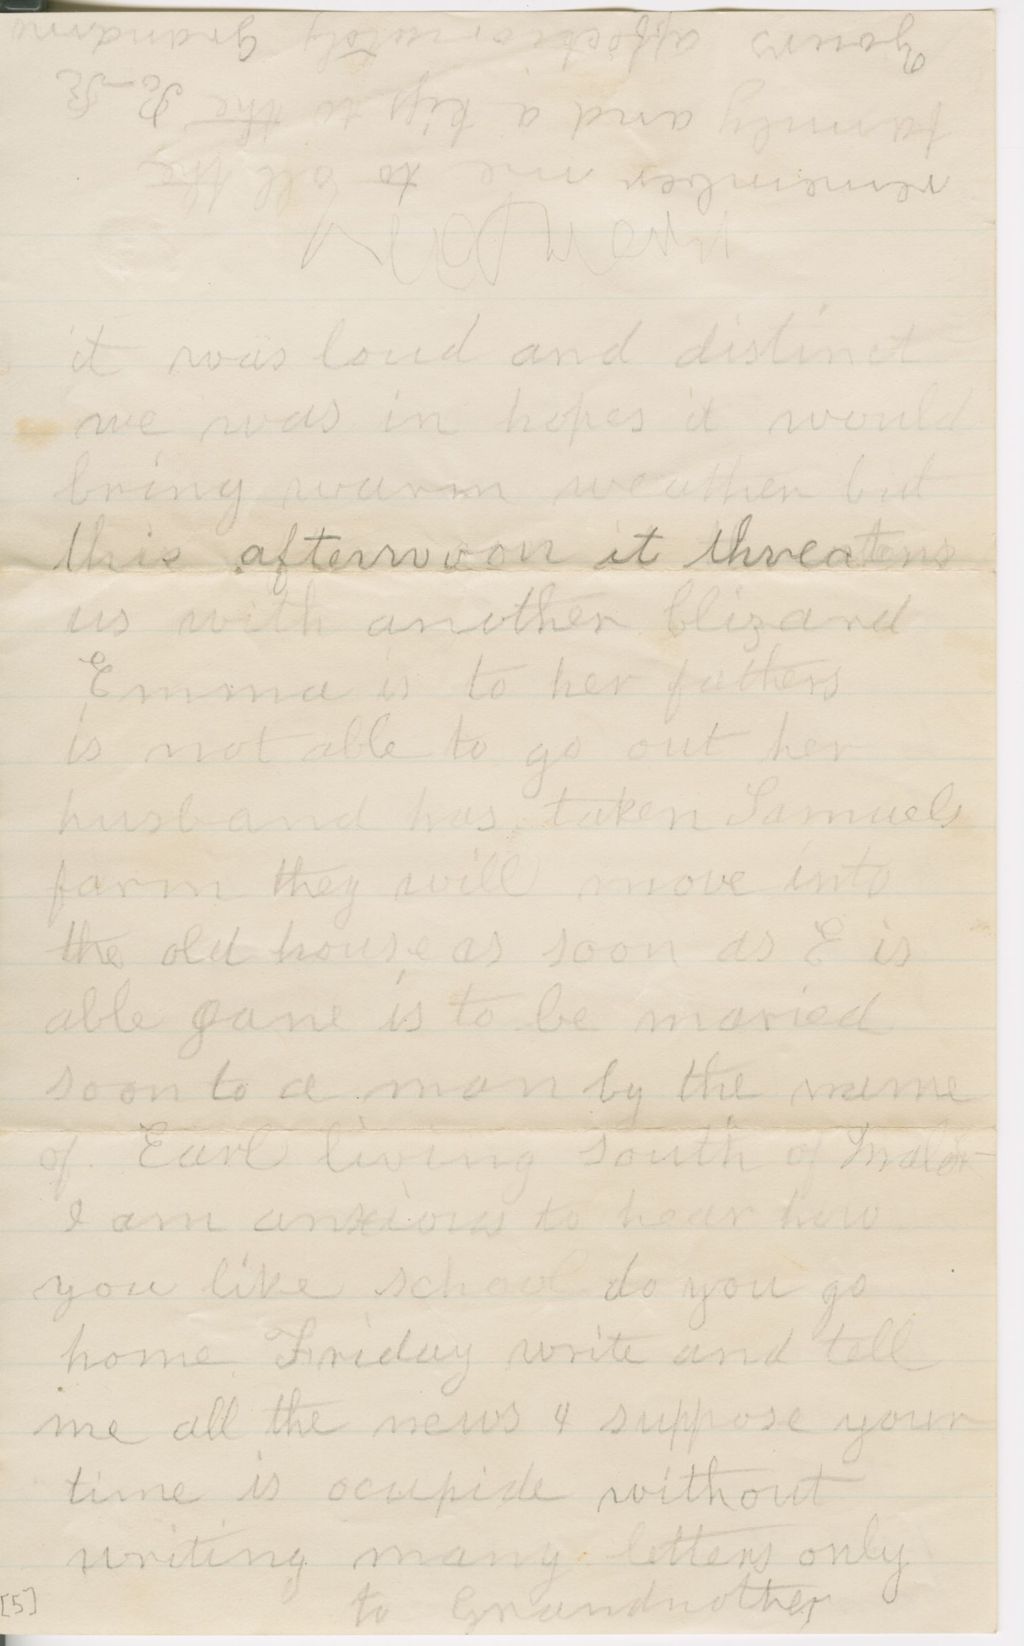 it was loud and distinct
we was in hopes it would
bring warm weather but
this afternoon it threatens
us with another blizard
Emma is to her fathers
is not able to go out her
husband has taken Samuels
farm they will move into
the old house as soon as E is
able Jane is to be maried
soon to a man by the name
of Earl living south of
I am anxious to hear how
you like school do you go
home Friday write and tell
me all the news & suppose your
time is ocupide without
writing many letters only
to Grandmother
[5]
remember me to all the
family and a kiss to the
yours affectionately Grandma